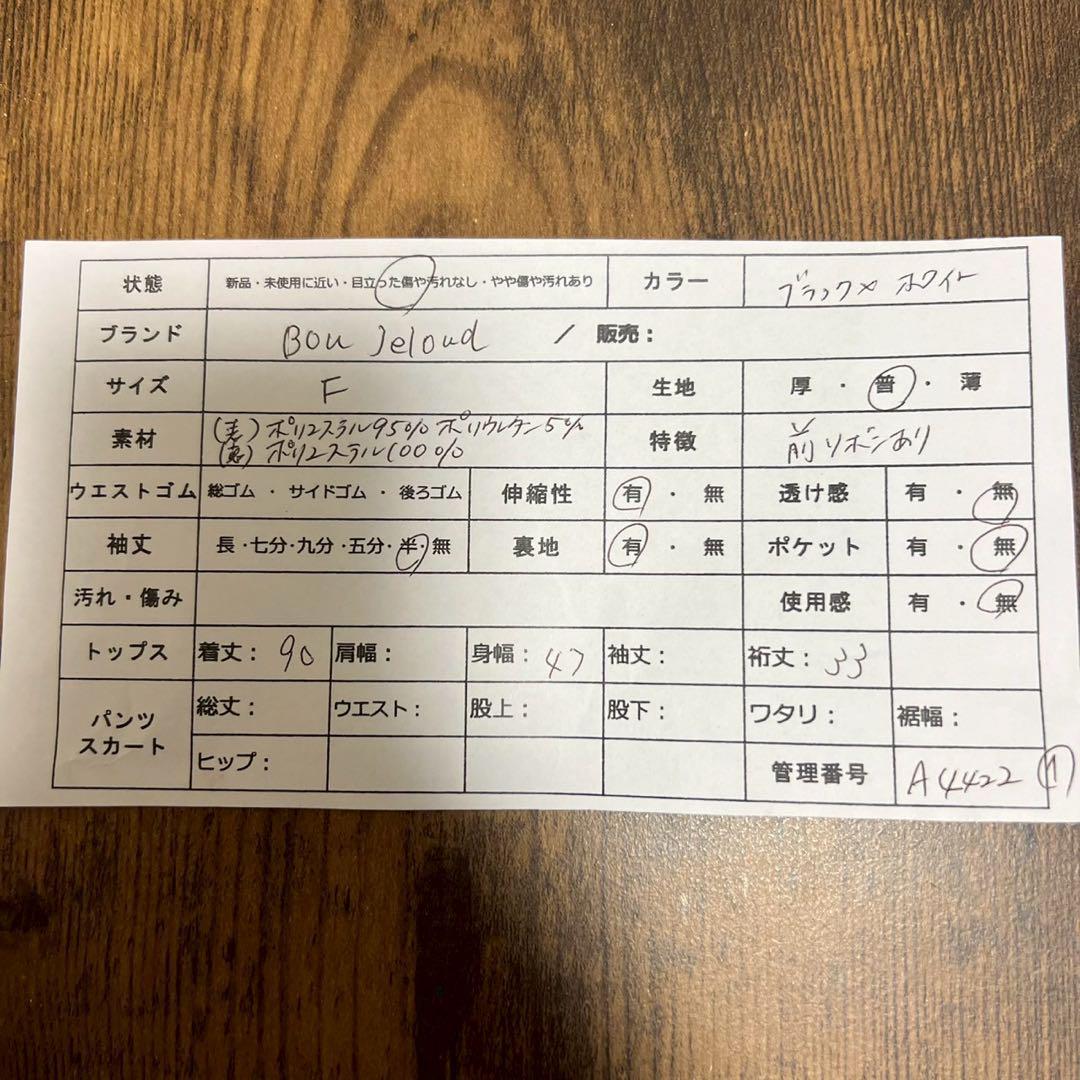 状態 新品・未使用に近い・目立った傷や汚れなし・やや傷や汚れあり カラー ブラック×ホワイト
ブランド Bou Jeloud / 販売：
サイズ F 生地 厚・普・薄
素材 (表)ポリエステル95% ポリウレタン5% 特徴 前リボンあり
(裏)ポリエステル100%
ウエストゴム 総ゴム・サイドゴム・後ろゴム 伸縮性 有・無 透け感 有・無
袖丈 長・七分・九分・五分・半・無 裏地 有・無 ポケット 有・無
汚れ・傷み 使用感 有・無
トップス 着丈：90 肩幅： 身幅：47 袖丈： 裄丈：33
パンツ 総丈： ウエスト： 股上： 股下： ワタリ： 裾幅：
スカート ヒップ： 管理番号 A4422 (1)